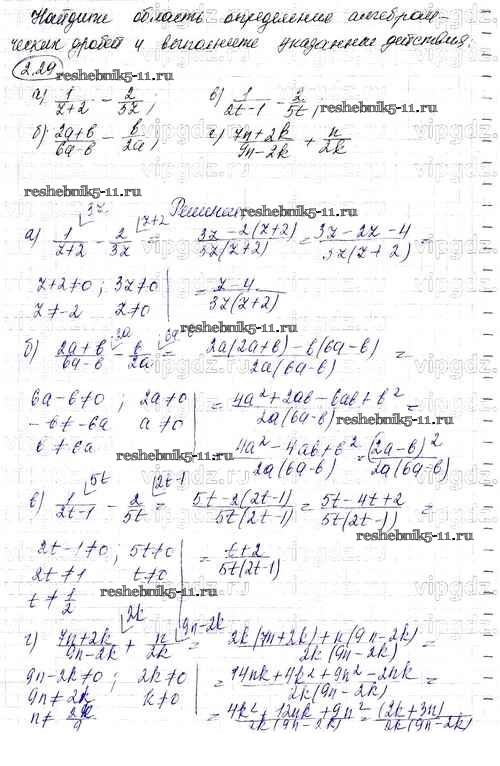 Найдите область определение алгебраи-
ческих дробей и выполните указанные действия:
2.29
reshebnik5-11.ru
а) 1/(z+2) - 2/3z; в) 1/(2t-1) - 2/5t;
б) (2a+b)/(6a-b) - b/2a; г) (7n+2k)/(9n-2k) + n/2k
reshebnik5-11.ru
Решение
а) 1/(z+2) - 2/3z = (3z-2(z+2))/(3z(z+2)) = (3z-2z-4)/(3z(z+2)) =
z+2≠0; 3z≠0 = (z-4)/(3z(z+2))
z≠-2 z≠0
reshebnik5-11.ru
б) (2a+b)/(6a-b) - b/2a = (2a(2a+b)-b(6a-b))/(2a(6a-b)) =
6a-b≠0; 2a≠0 = (4a²+2ab-6ab+b²)/(2a(6a-b)) =
-b≠-6a a≠0
b≠6a (4a²-4ab+b²)/(2a(6a-b)) = (2a-b)²/(2a(6a-b))
reshebnik5-11.ru
в) 1/(2t-1) - 2/5t = (5t-2(2t-1))/(5t(2t-1)) = (5t-4t+2)/(5t(2t-1)) =
2t-1≠0; 5t≠0 = (t+2)/(5t(2t-1))
2t≠1 t≠0
t≠1/2
reshebnik5-11.ru
г) (7n+2k)/(9n-2k) + n/2k = (2k(7n+2k)+n(9n-2k))/(2k(9n-2k)) =
9n-2k≠0; 2k≠0 = (14nk+4k²+9n²-2nk)/(2k(9n-2k)) =
9n≠2k k≠0
n≠2k/9 = (4k²+12nk+9n²)/(2k(9n-2k)) = (2k+3n)/(2k(9n-2k))